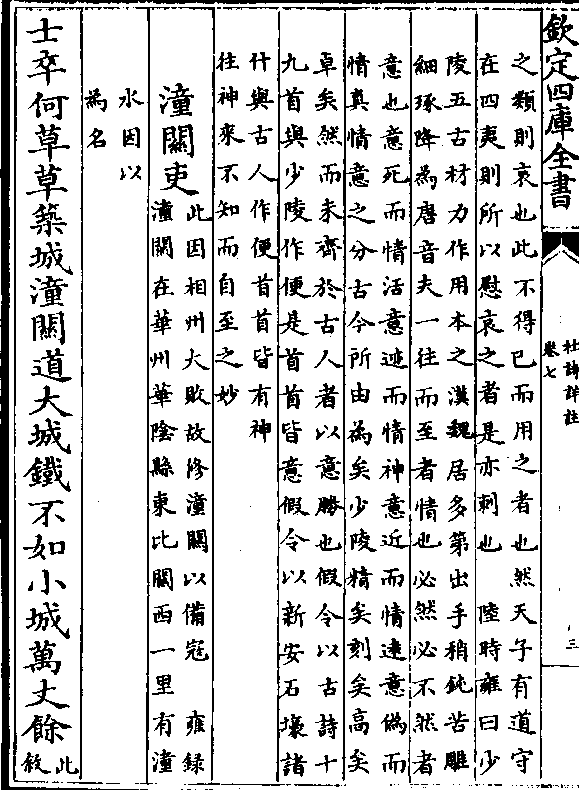 欽定四庫全書
杜詩詳註
卷七
三
之類則哀也此不得已而用之者也然天子有道守
在四夷則所以慰哀之者是亦刺也 陸時雍曰少
陵五古材力作用本之漢魏居多第出手稍鈍苦雕
細琢降為唐音夫一往而至者情也必然必不然者
意也意死而情活意迹而情神意近而情遠意偽而
情真情意之分古今所由為矣少陵精矣刻矣高矣
卓矣然而未齊於古人者以意勝也假令以古詩十
九首與少陵作便是首首皆意假令以新安石壕諸
什與古人作便首首皆有神
往神來不知而自至之妙
潼關吏
此因相州大敗故修潼關以備冦 雍録
潼關在華州華陰縣東比關西一里有潼
水因以
為名
士卒何草草築城潼關道大城鐵不如小城萬丈餘
此
敘